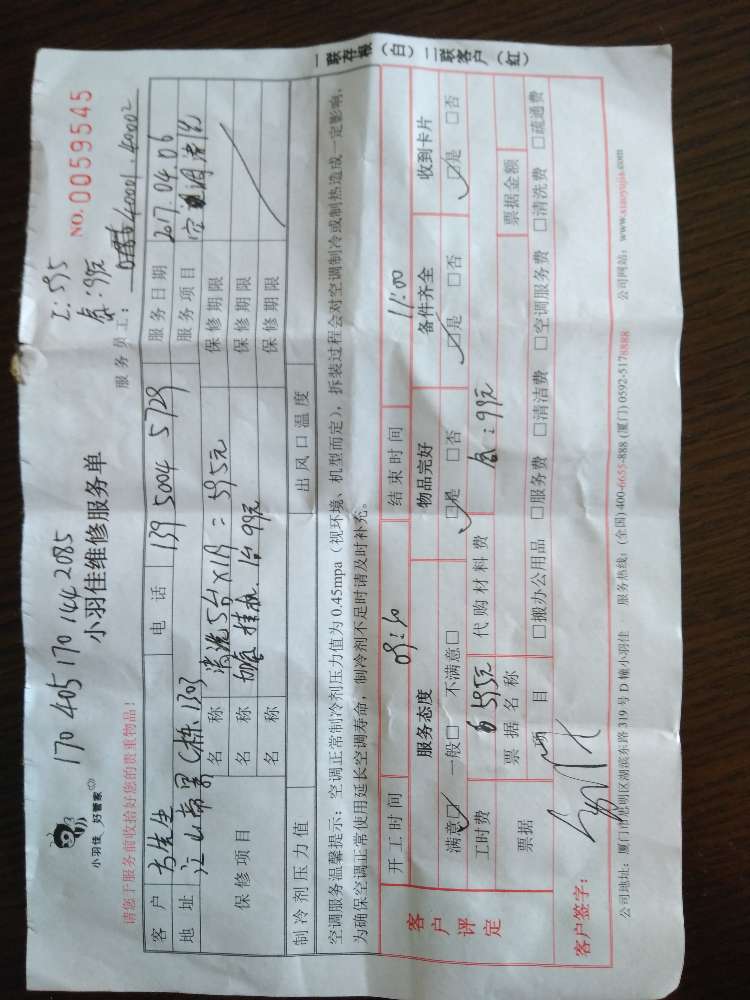 170 405 170 144 2085
工:595
套:99元
NO.0059545
小羽佳 好管家
小羽佳维修服务单
服务员工: 40001.40002
请您于服务前收拾好您的贵重物品!
客户 方先生 电话 139 5004 5729 服务日期 2017.04.06
地址 江山帝景C栋1303 服务项目 空调清洗
保修项目 名称 清洗5台×119=595元 保修期限
名称 挂机.1台99元 保修期限
名称 保修期限
制冷剂压力值 出风口温度
空调服务温馨提示:空调正常制冷剂压力值为0.45mpa(视环境、机型而定),拆装过程会对空调制冷或制热造成一定影响,
为确保空调正常使用延长空调寿命,制冷剂不足时请及时补充。
客户评定
开工时间 09:10 结束时间 11:00
服务态度 物品完好 备件齐全 收到卡片
满意□ 一般□ 不满意□ □是 □否 □是 □否 □是 □否
工时费 595元 代购材料费 :99元
票据 票据名称 票据金额
项目 □搬办公用品 □服务费 □清洁费 □空调服务费 □清洗费 □疏通费
客户签字:
公司地址:厦门市思明区湖滨东路319号D幢小羽佳 服务热线:(全国)400-6655-888 (厦门)0592-5178888 公司网站:www.xiaoyujia.com
一联存根(白)二联客户(红)